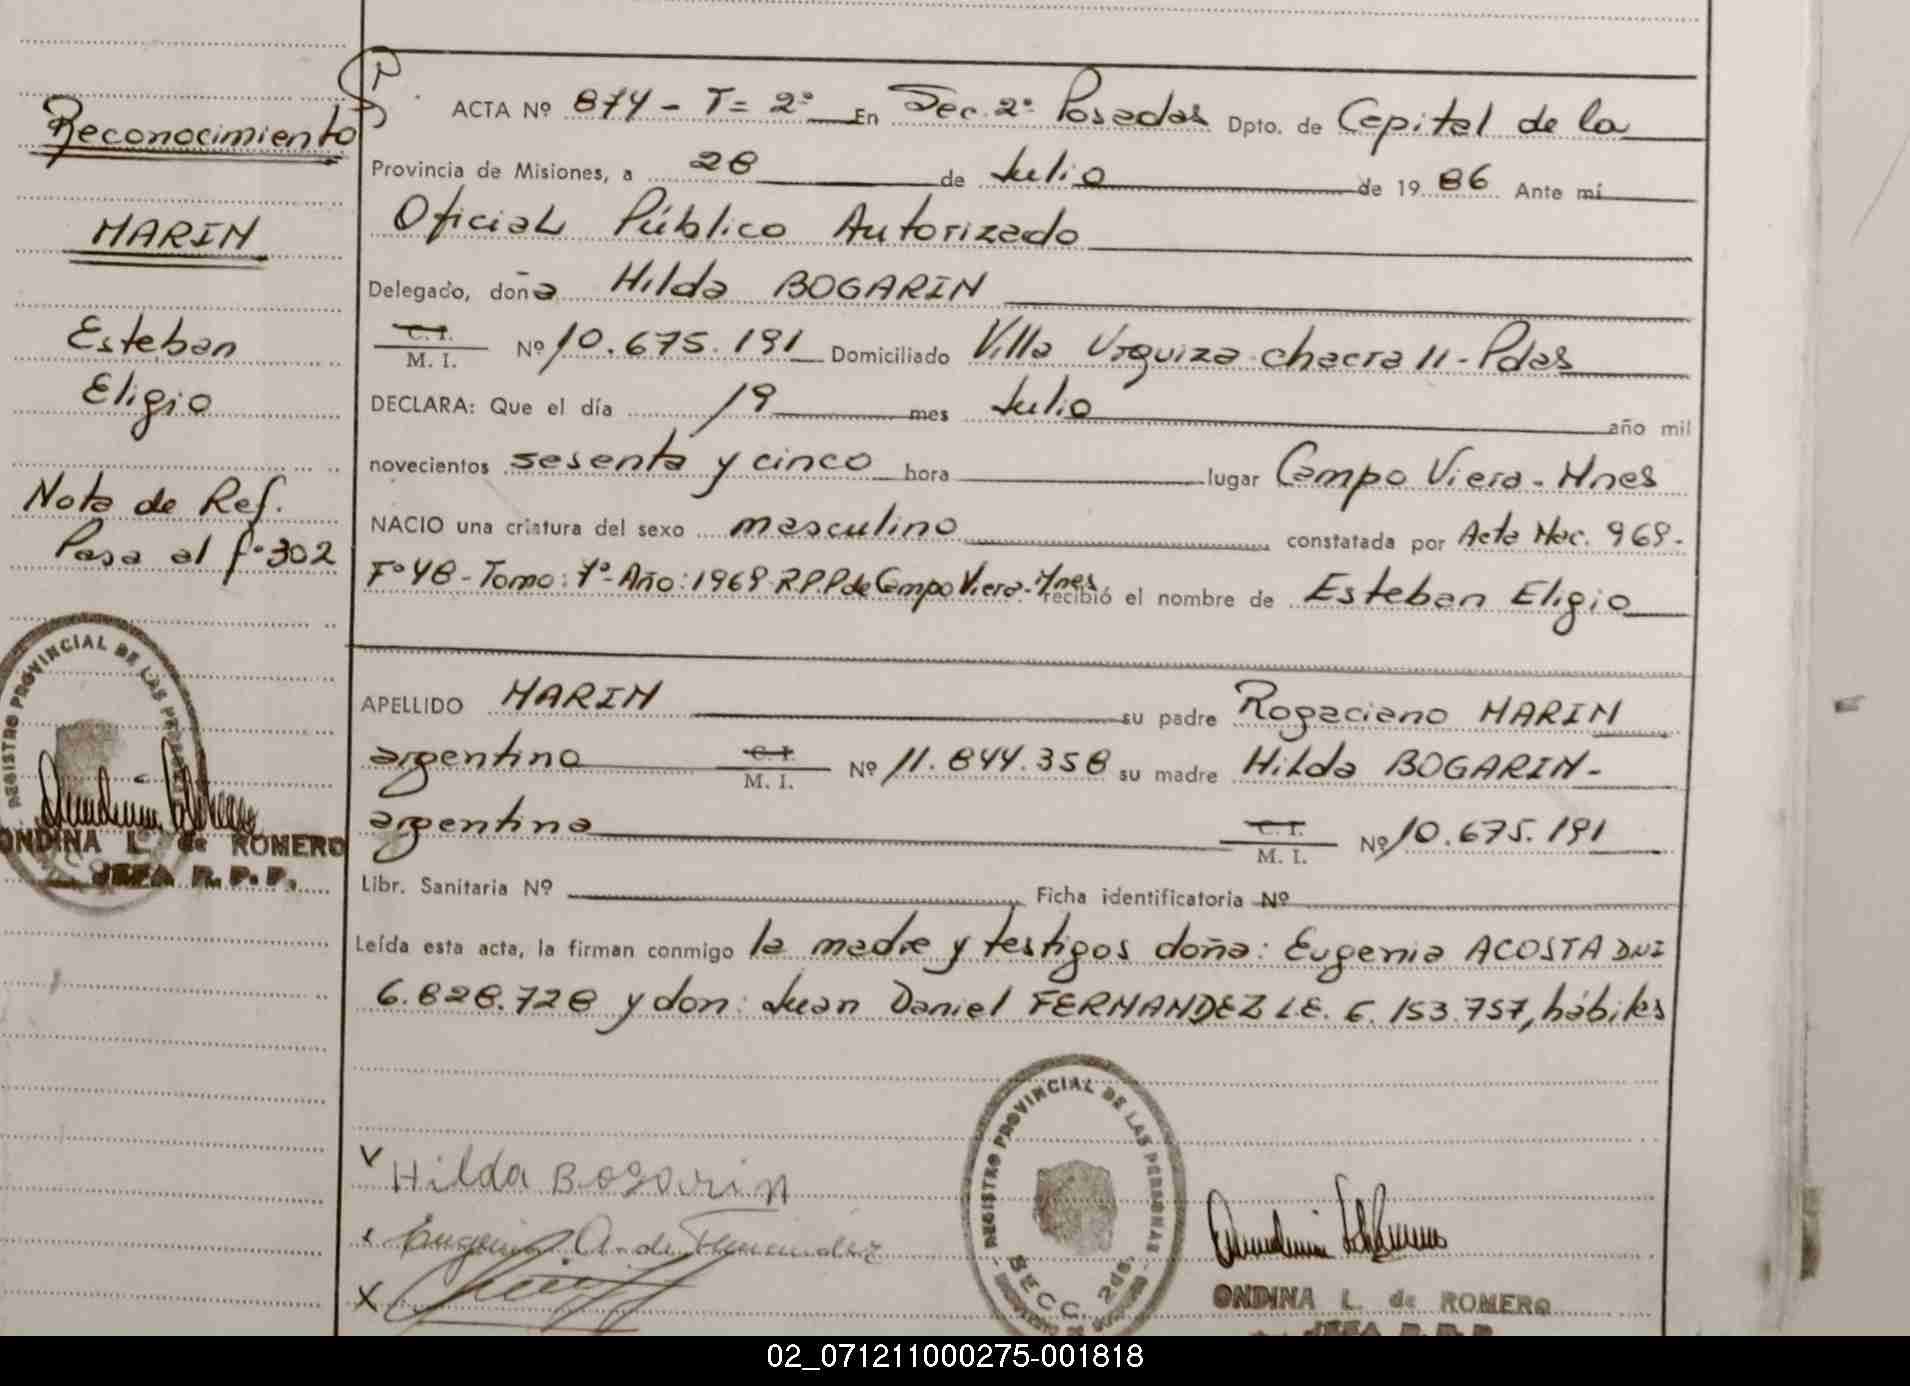 Reconocimiento
MARIN
Esteban
Eligio
Nota de Ref.
Pasa al fº 302
REGISTRO PROVINCIAL DE LAS PERSONAS
ONDINA L. de ROMERO
JEFA R. P. P.
ACTA Nº 874 - T= 2º En Sec. 2º Posadas Dpto. de Capital de la
Provincia de Misiones, a 28 de Julio de 19 86 Ante mí
Oficial Público Autorizado
Delegado, doña Hilda BOGARIN
C. I.
M. I. Nº 10.675.191 Domiciliado Villa Urquiza chacra 11 - Pdas
DECLARA: Que el día 19 mes Julio año mil
novecientos sesenta y cinco hora lugar Campo Viera - Mnes
NACIO una criatura del sexo masculino constatada por Acta Nac. 969-
Fº 48 - Tomo: 1º - Año: 1969 R.P.P de Campo Viera - Mnes recibió el nombre de Esteban Eligio
APELLIDO MARIN su padre Rogaciano MARIN
argentino C. I.
M. I. Nº 11.844.358 su madre Hilda BOGARIN -
argentina C. I.
M. I. Nº 10.675.191
Libr. Sanitaria Nº Ficha identificatoria Nº
Leída esta acta, la firman conmigo la madre y testigos doña: Eugenia ACOSTA DNI
6.828.728 y don: Juan Daniel FERNANDEZ L.E. 6.153.757, hábiles
Hilda Bogarin
Eugenia A. de Fernandez
REGISTRO PROVINCIAL DE LAS PERSONAS
SECC. 2da.
ONDINA L. de ROMERO
JEFA R. P. P.
02_071211000275-001818